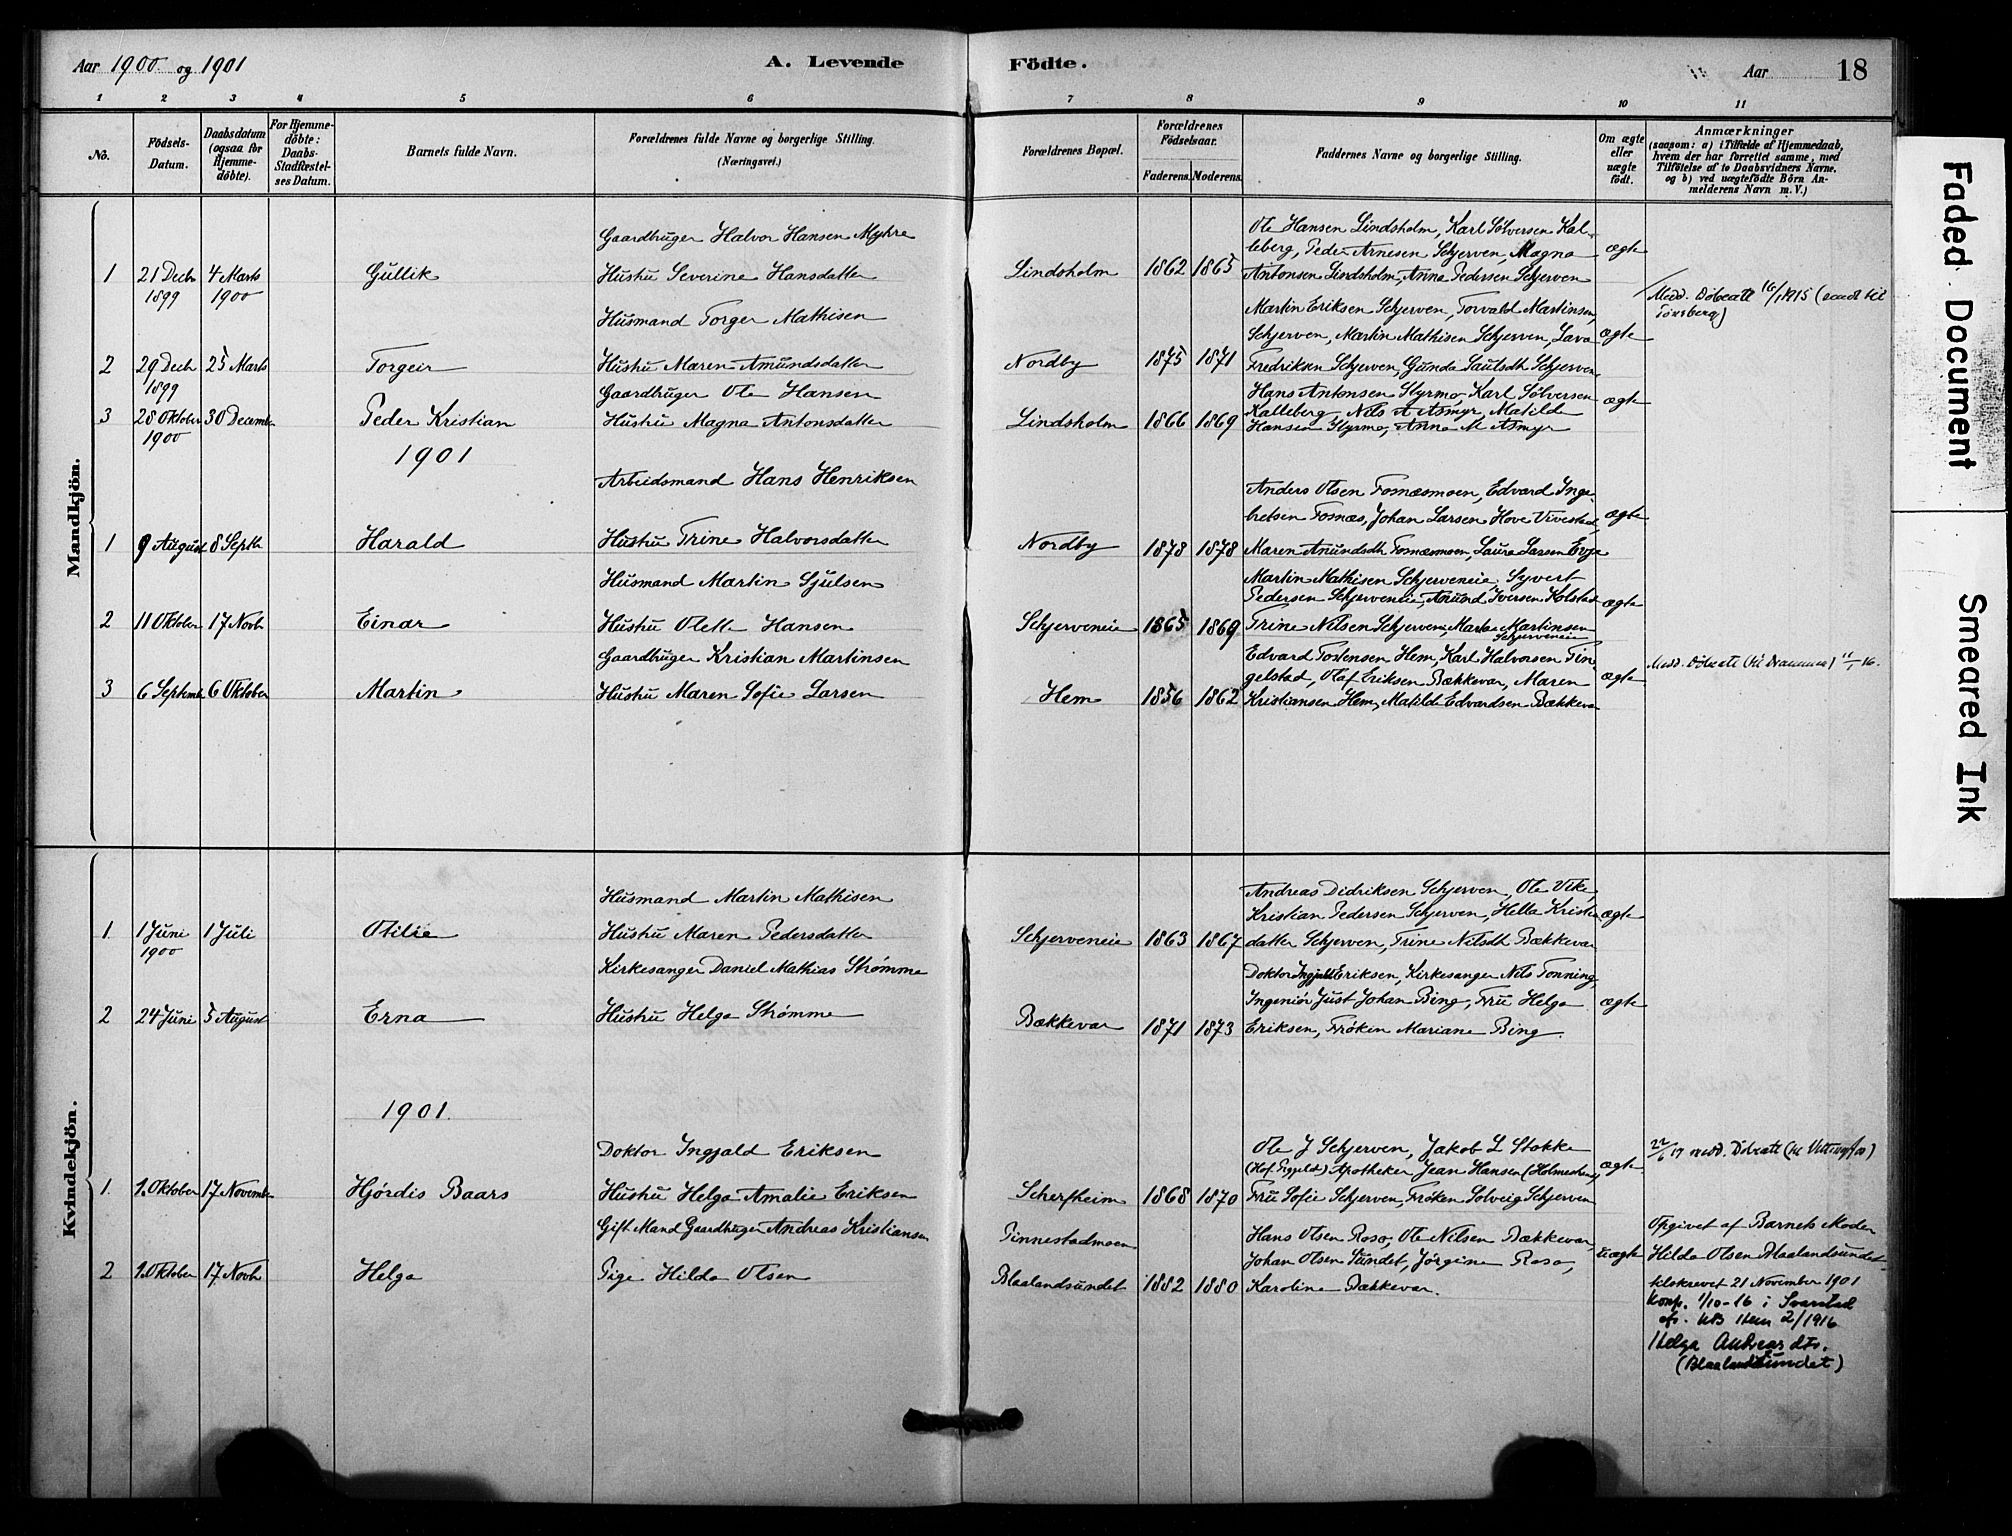 Aar 1900 og 1901
A. Levende Födte.
Aar
18
1 2 3 4 5 6 7 8 9 10 11
No.
Födsels-Datum.
Daabsdatum (ogsaa for Hjemmedöbte).
For Hjemmedöbte: Daabs-Stadfæstelses Datum.
Barnets fulde Navn.
Forældrenes fulde Navne og borgerlige Stilling. (Næringsvei.)
Forældrenes Bopæl.
Forældrenes Födselsaar.
Faderens. Moderens.
Faddernes Navne og borgerlige Stilling.
Om ægte eller uægte födt.
Anmærkninger
(saasom: a) i Tilfælde af Hjemmedaab, hvem der har forrettet samme, med Tilföielse af to Daabsvidners Navne. og b) ved uægtefödte Börn Anmelderens Navn m. V.)
Mandkjön.
Gaardbruger Halvor Hansen Myhre
1 21 Decbr 1899 4 Marts 1900 Gullik Hustru Severine Hansdatter Lindsholm 1862 1865
Ole Hansen Lindsholm, Karl Sølversen Kal-
leberg, Peder Arnesen Schjerven, Magna
Antonsen Lindsholm, Anna Pedersen Schjerven
ægte
Husmand Torger Mathisen
2 29 Decbr 1899 25 Marts Torgeir Hustru Maren Amundsdatter Nordby 1875 1871
Martin Eriksen Schjerven, Torvald Martinsen,
Schjerven, Martin Mathisen Schjerven, Lava
Fredriksen Schjerven, Gunda Schjerven
ægte
Medd. Døbeatt 16/1 1915 (sendt til Tønsberg)
Gaardbruger Ole Hansen
3 28 Oktober 1900 30 December Peder Kristian Hustru Magna Antonsdatter Lindsholm 1866 1869
Hans Antonsen Styrmo, Karl Sølversen
Kalleberg, Nils A Asmyr, Matild
Hansen Styrmo, Anna M Asmyr
ægte
1901
Arbeidsmand Hans Henriksen
1 9 August 8 Septb Harald Hustru Trine Halvorsdatter Nordby 1878 1878
Anders Olsen Fornæsmoen, Edvard Inge-
bretsen Fornæs, Johan Larsen Hove Vivestad
Maren Anundsdtr Fornæsmoen, Laura Larsen Evje
ægte
Husmand Martin Sjulsen
2 11 Oktober 17 Novbr Einar Hustru Olette Hansen Schjerveneie 1865 1869
Martin Mathisen Schjerveneie, Syvert
Pedersen Schjerveneie, Anund Iversen Kolstad
Trine Nilsen Schjerven, Marta Martinsen
Schjerveneie
ægte
Gaardbruger Kristian Martinsen
3 6 Septembr 6 Oktober Martin Hustru Maren Sofie Larsen Hem 1856 1862
Edvard Tostensen Hem, Karl Halvorsen Tin-
gelstad, Olaf Eriksen Bækkevar, Maren
Kristiansen Hem, Matilde Edvardsen Bækkevar
ægte
Medd. Døbeatt (til Drammen) 11/1 16.
Kvindekjön.
Husmand Martin Mathisen
1. 1 Juni 1900 1 Juli Otilie Hustru Maren Pedersdatter Schjerveneie 1863 1867
Andreas Didriksen Schjerven, Ole Vike,
Kristian Pedersen Schjerven, Hella Kristen
datter Schjerven, Trine Nilsdtr Bækkevar
ægte
Kirkesanger Daniel Mathias Strømme
2 24 Juni 5 August Erna Hustru Helga Strømme Bækkevar 1871 1873
Doktor Ingjald Eriksen, Kirkesanger Nils Tonning,
Ingeniør Just Johan Bing, Fru Helga
Eriksen, Frøken Mariane Bing.
ægte
1901.
Doktor Ingjald Eriksen
1. 1. Oktober 17 November Hjørdis Baars Hustru Helga Amalie Eriksen Scherfheim 1868 1870
Ole J Schjerven, Jakob L Stokke
Apotheker Jean Hansen (Holmestrand)
Fru Sofie Schjerven, Frøken Solveig Schjerven
ægte
22/6 17 medd. Døbeatt
Gift Mand Gaardbruger Andreas Kristiansen Finnestadmoen
2 1. Oktober 17 Novbr Helga Pige Hilda Olsen Blaalandsundet 1882 1880
Hans Olsen Roso, Ole Nilsen Bækkevar,
Johan Olsen Sundet, Jørgine Roso,
Karoline Bækkevar.
uægte
Opgivet af Barnets Moder
Hilda Olsen Blaalandsundet
tilskrevet 21 November 1901
Konf. 1/10-16 i Svarstad
efr. KB Hem 2/1916
Helga Andreasdtr.
(Blaalandsundet)
Faded Document
Smeared Ink